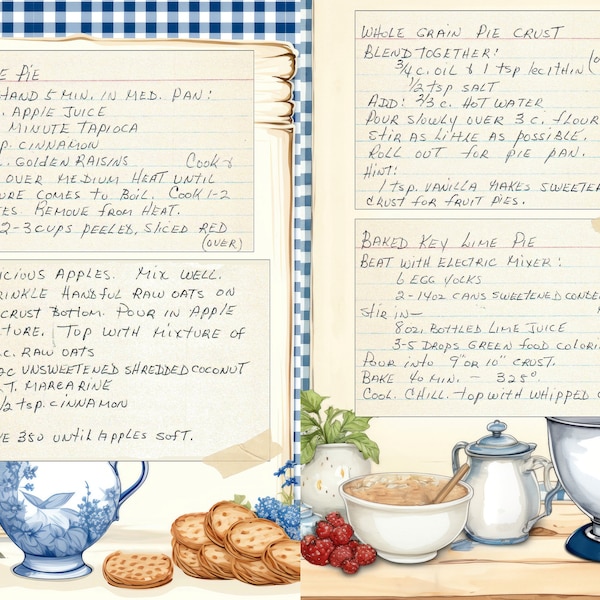 PIE
HAND 5 MIN. IN MED. PAN:
APPLE JUICE
MINUTE TAPIOCA
P. CINNAMON
GOLDEN RAISINS COOK &
OVER MEDIUM HEAT UNTIL
URE COMES TO BOIL. COOK 1-2
TES. REMOVE FROM HEAT.
2-3 CUPS PEELED, SLICED RED
(OVER)
ICIOUS APPLES. MIX WELL.
RINKLE HANDFUL RAW OATS ON
CRUST BOTTOM. POUR IN APPLE
TURE. TOP WITH MIXTURE OF
C. RAW OATS
2C UNSWEETENED SHREDDED COCONUT
T. MARGARINE
1/2 TSP. CINNAMON
350 UNTIL APPLES SOFT.
WHOLE GRAIN PIE CRUST
BLEND TOGETHER:
3/4 C. OIL & 1 TSP LECITHIN
1/2 TSP SALT
ADD: 2/3 C. HOT WATER
POUR SLOWLY OVER 3 C. FLOUR
STIR AS LITTLE AS POSSIBLE.
ROLL OUT FOR PIE PAN.
HINT:
1 TSP. VANILLA MAKES SWEETER
CRUST FOR FRUIT PIES.
BAKED KEY LIME PIE
BEAT WITH ELECTRIC MIXER:
6 EGG YOLKS
2-14OZ CANS SWEETENED CONDE
STIR IN-
8OZ. BOTTLED LIME JUICE
3-5 DROPS GREEN FOOD COLORI
POUR INTO 9" OR 10" CRUST.
BAKE 40 MIN. - 325°.
COOL. CHILL. TOP WITH WHIPPED C